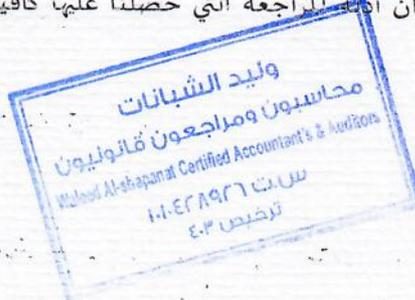 ان أدلة المراجعة التي حصلنا عليها كافية
وليد الشبانات
محاسبون ومراجعون قانونيون
Waleed Al-shapanat Certified Accountant's & Auditors
س.ت ١٠١٠٤٢٨٩٢٦
ترخيص ٤٠٣